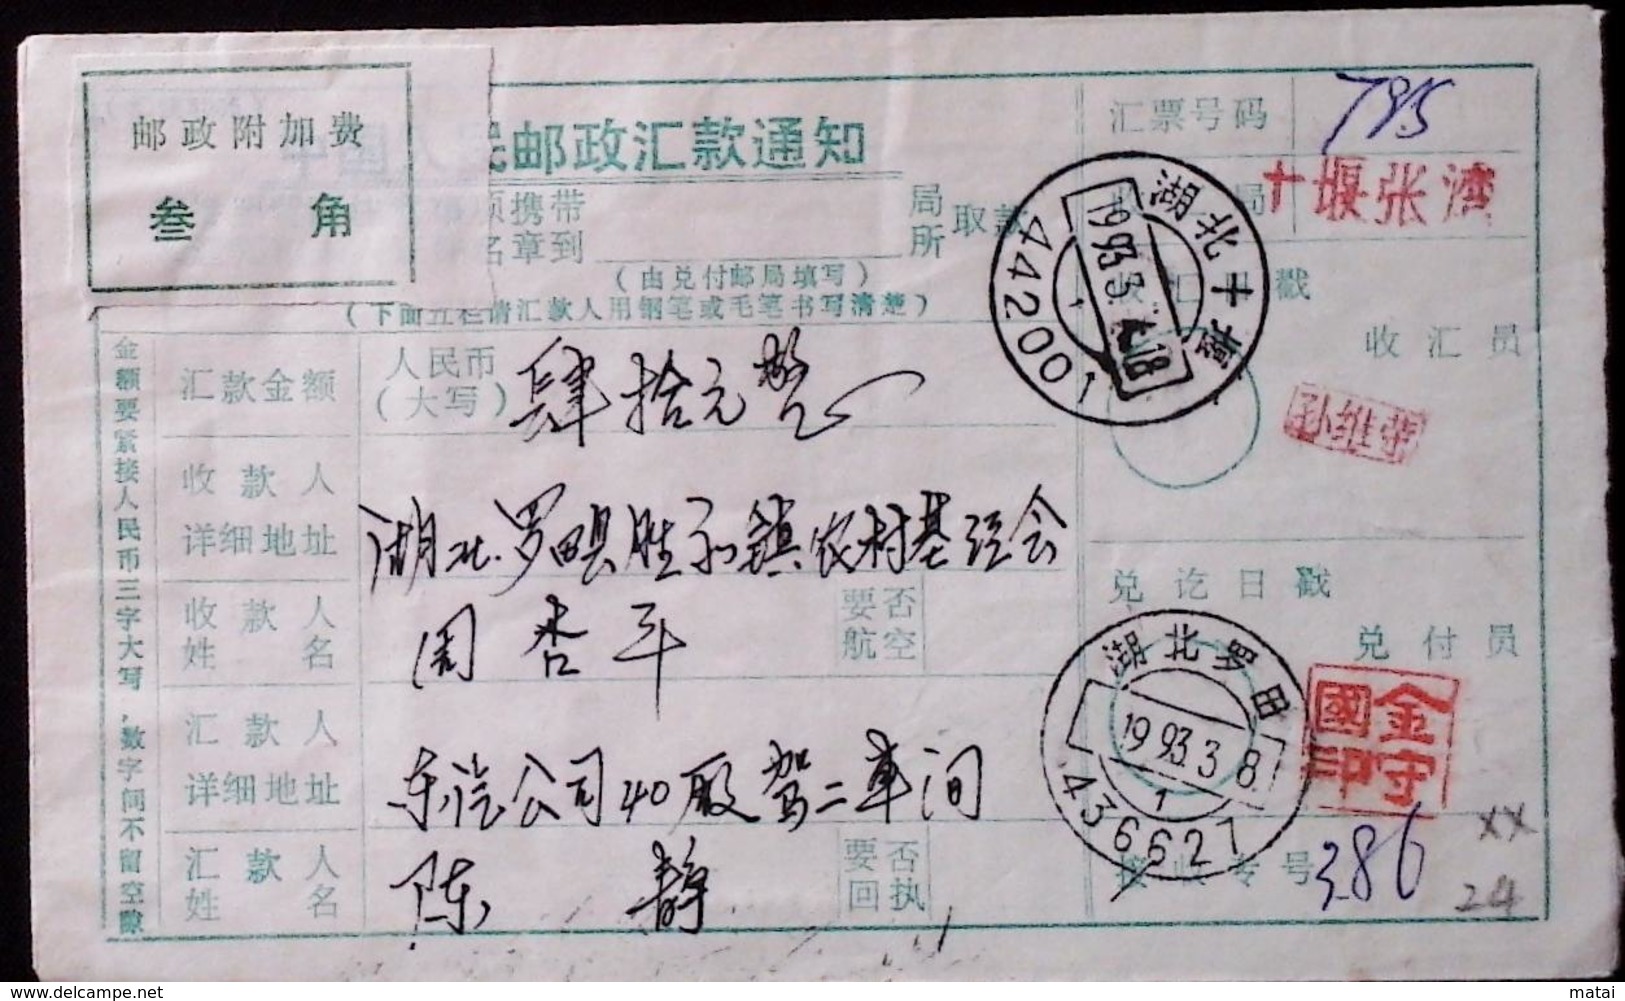 邮政附加费
叁 角
民邮政汇款通知
须携带 局
名章到 所 取款
(由兑付邮局填写)
(下面五栏请汇款人用钢笔或毛笔书写清楚)
金额要紧接人民币三字大写,数字间不留空隙
汇款金额
人民币
(大写)
肆拾元整
收款人
详细地址
湖北罗田县胜利镇农村基经会
收款人
姓名
周杏平
要否
航空
汇款人
详细地址
东汽公司40厂驾二车间
汇款人
姓名
陈静
要否
回执
汇票号码
795
收汇局
十堰张湾
收汇日戳
湖北十堰
1993.3.
18
1
442001
收汇员
孙维荣
兑讫日戳
湖北罗田
1993.3.8.
1
436627
兑付员
金守國印
接收专号
386
xx
24
delcampe.net
matai